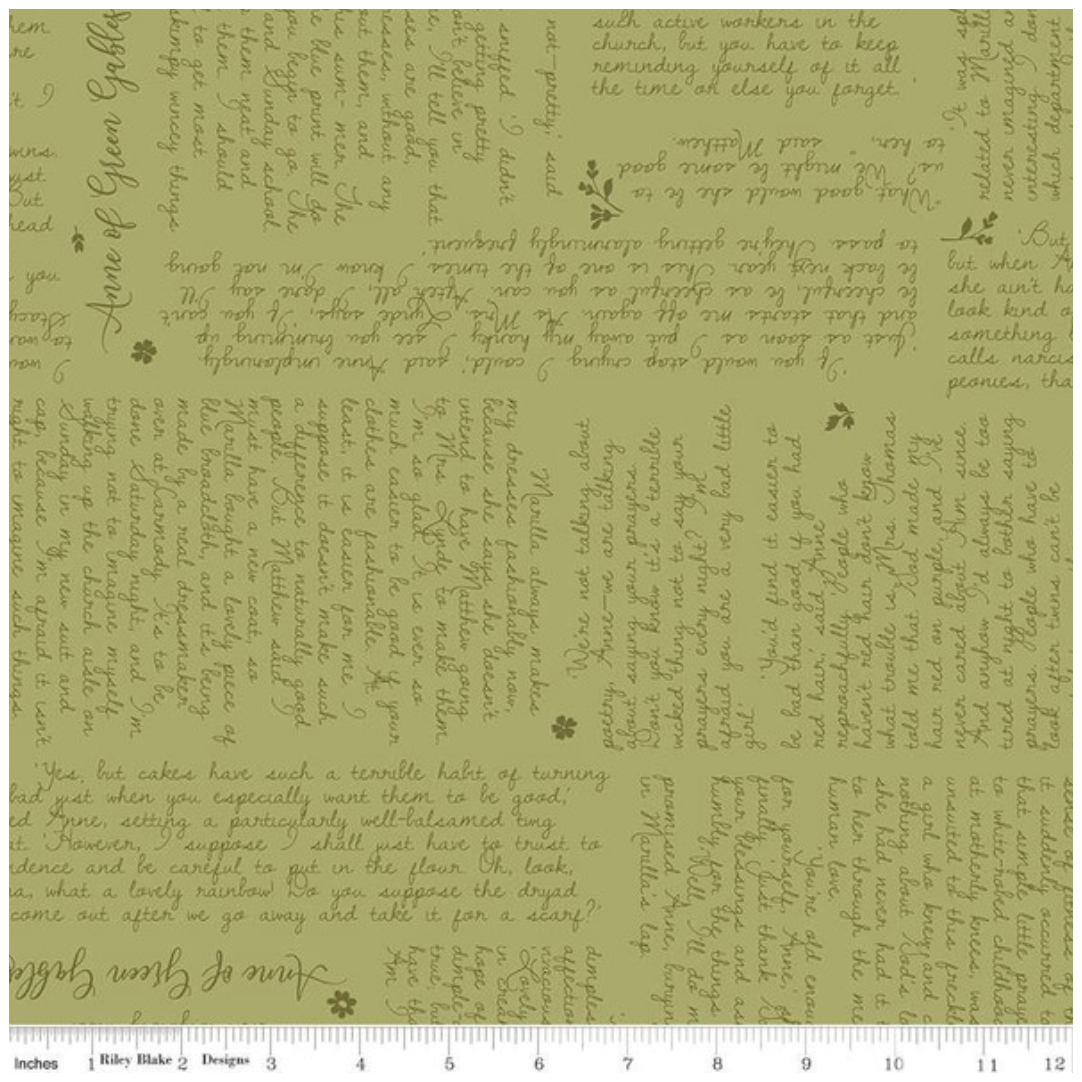 such active workers in the
church, but you have to keep
reminding yourself of it all
the time or else you forget.
"What good would she be to
us? We might be some good
to her," said Matthew.
'If you would stop crying I could,' said Anne imploringly.
'Just as soon as I put away my hanky I see you brimming up
and that starts me off again. As Mrs. Lynde says, If you can't
be cheerful, be as cheerful as you can. After all, I dare say I'll
be back next year. This is one of the times I know I'm not going
to pass. They're getting alarmingly frequent.
Anne of Green Gables
not-pretty,' said
sniffed. 'I didn't
getting pretty
on't believe in
re, I'll tell you that
ses are good,
resses, without any
out them, and
his sum- mer. The
e blue print will do
you begin to go. The
and Sunday school
them neat and
them I should
to get most
skimpy wincey things
'It was spl
related to Marilla
never imagined an
interesting I don
which department
'But
but when An
she ain't ha
look kind o
something l
calls narcis
peonies, tha
Marilla always makes
my dresses fashionably now,
because she says she doesn't
intend to have Matthew going
to Mrs. Lynde to make them.
I'm so glad. It is ever so
much easier to be good if your
clothes are fashionable. At
least, it is easier for me. I
suppose it doesn't make such
a difference to naturally good
people. But Matthew said I
must have a new coat, so
Marilla bought a lovely piece of
blue broadcloth, and it's being
made by a real dressmaker
over at Carmody. It's to be
done Saturday night, and I'm
trying not to imagine myself
walking up the church aisle on
Sunday in my new suit and
cap, because I'm afraid it isn't
right to imagine such things.
We're not talking about
poetry, Anne—we are talking
about saying your prayers.
Don't you know it's a terrible
wicked thing not to say your
prayers every night? I'm
afraid you are a very bad little
girl.'
'You'd find it easier to
be bad than good if you had
red hair,' said Anne
reproachfully. 'People who
haven't red hair don't know
what trouble is. Mrs. Thomas
told me that God made my
hair red on purple, and I've
never cared about Him since.
And anyhow I'd always be too
tired at night to bother saying
prayers. People who have to
look after twins can't be
'Yes, but cakes have such a terrible habit of turning
bad just when you especially want them to be good,'
ed Anne, setting a particularly well-balsamed twig
at. 'However, I suppose I shall just have to trust to
idence and be careful to put in the flour. Oh, look,
a, what a lovely rainbow! Do you suppose the dryad
come out after we go away and take it for a scarf?'
Anne of Green Gables
dimples
affection
vivacious
'Lovely
in cream
hope of
dimple-
true, but
have tha
Am I
'You're old enou
for yourself, Anne,' s
finally. 'Just thank G
your blessings and as
humbly for the things
'Well, I'll do m
promised Anne, buryin
in Marilla's lap.
sense of fitness of
it suddenly occurred to
that simple little praye
to white-robed childhood
at motherly knees, was
unsuited to this freckl
a girl who knew and c
nothing about God's lo
she had never had it t
to her through the me
human love.
Inches 1 Riley Blake 2 Designs 3 4 5 6 7 8 9 10 11 12